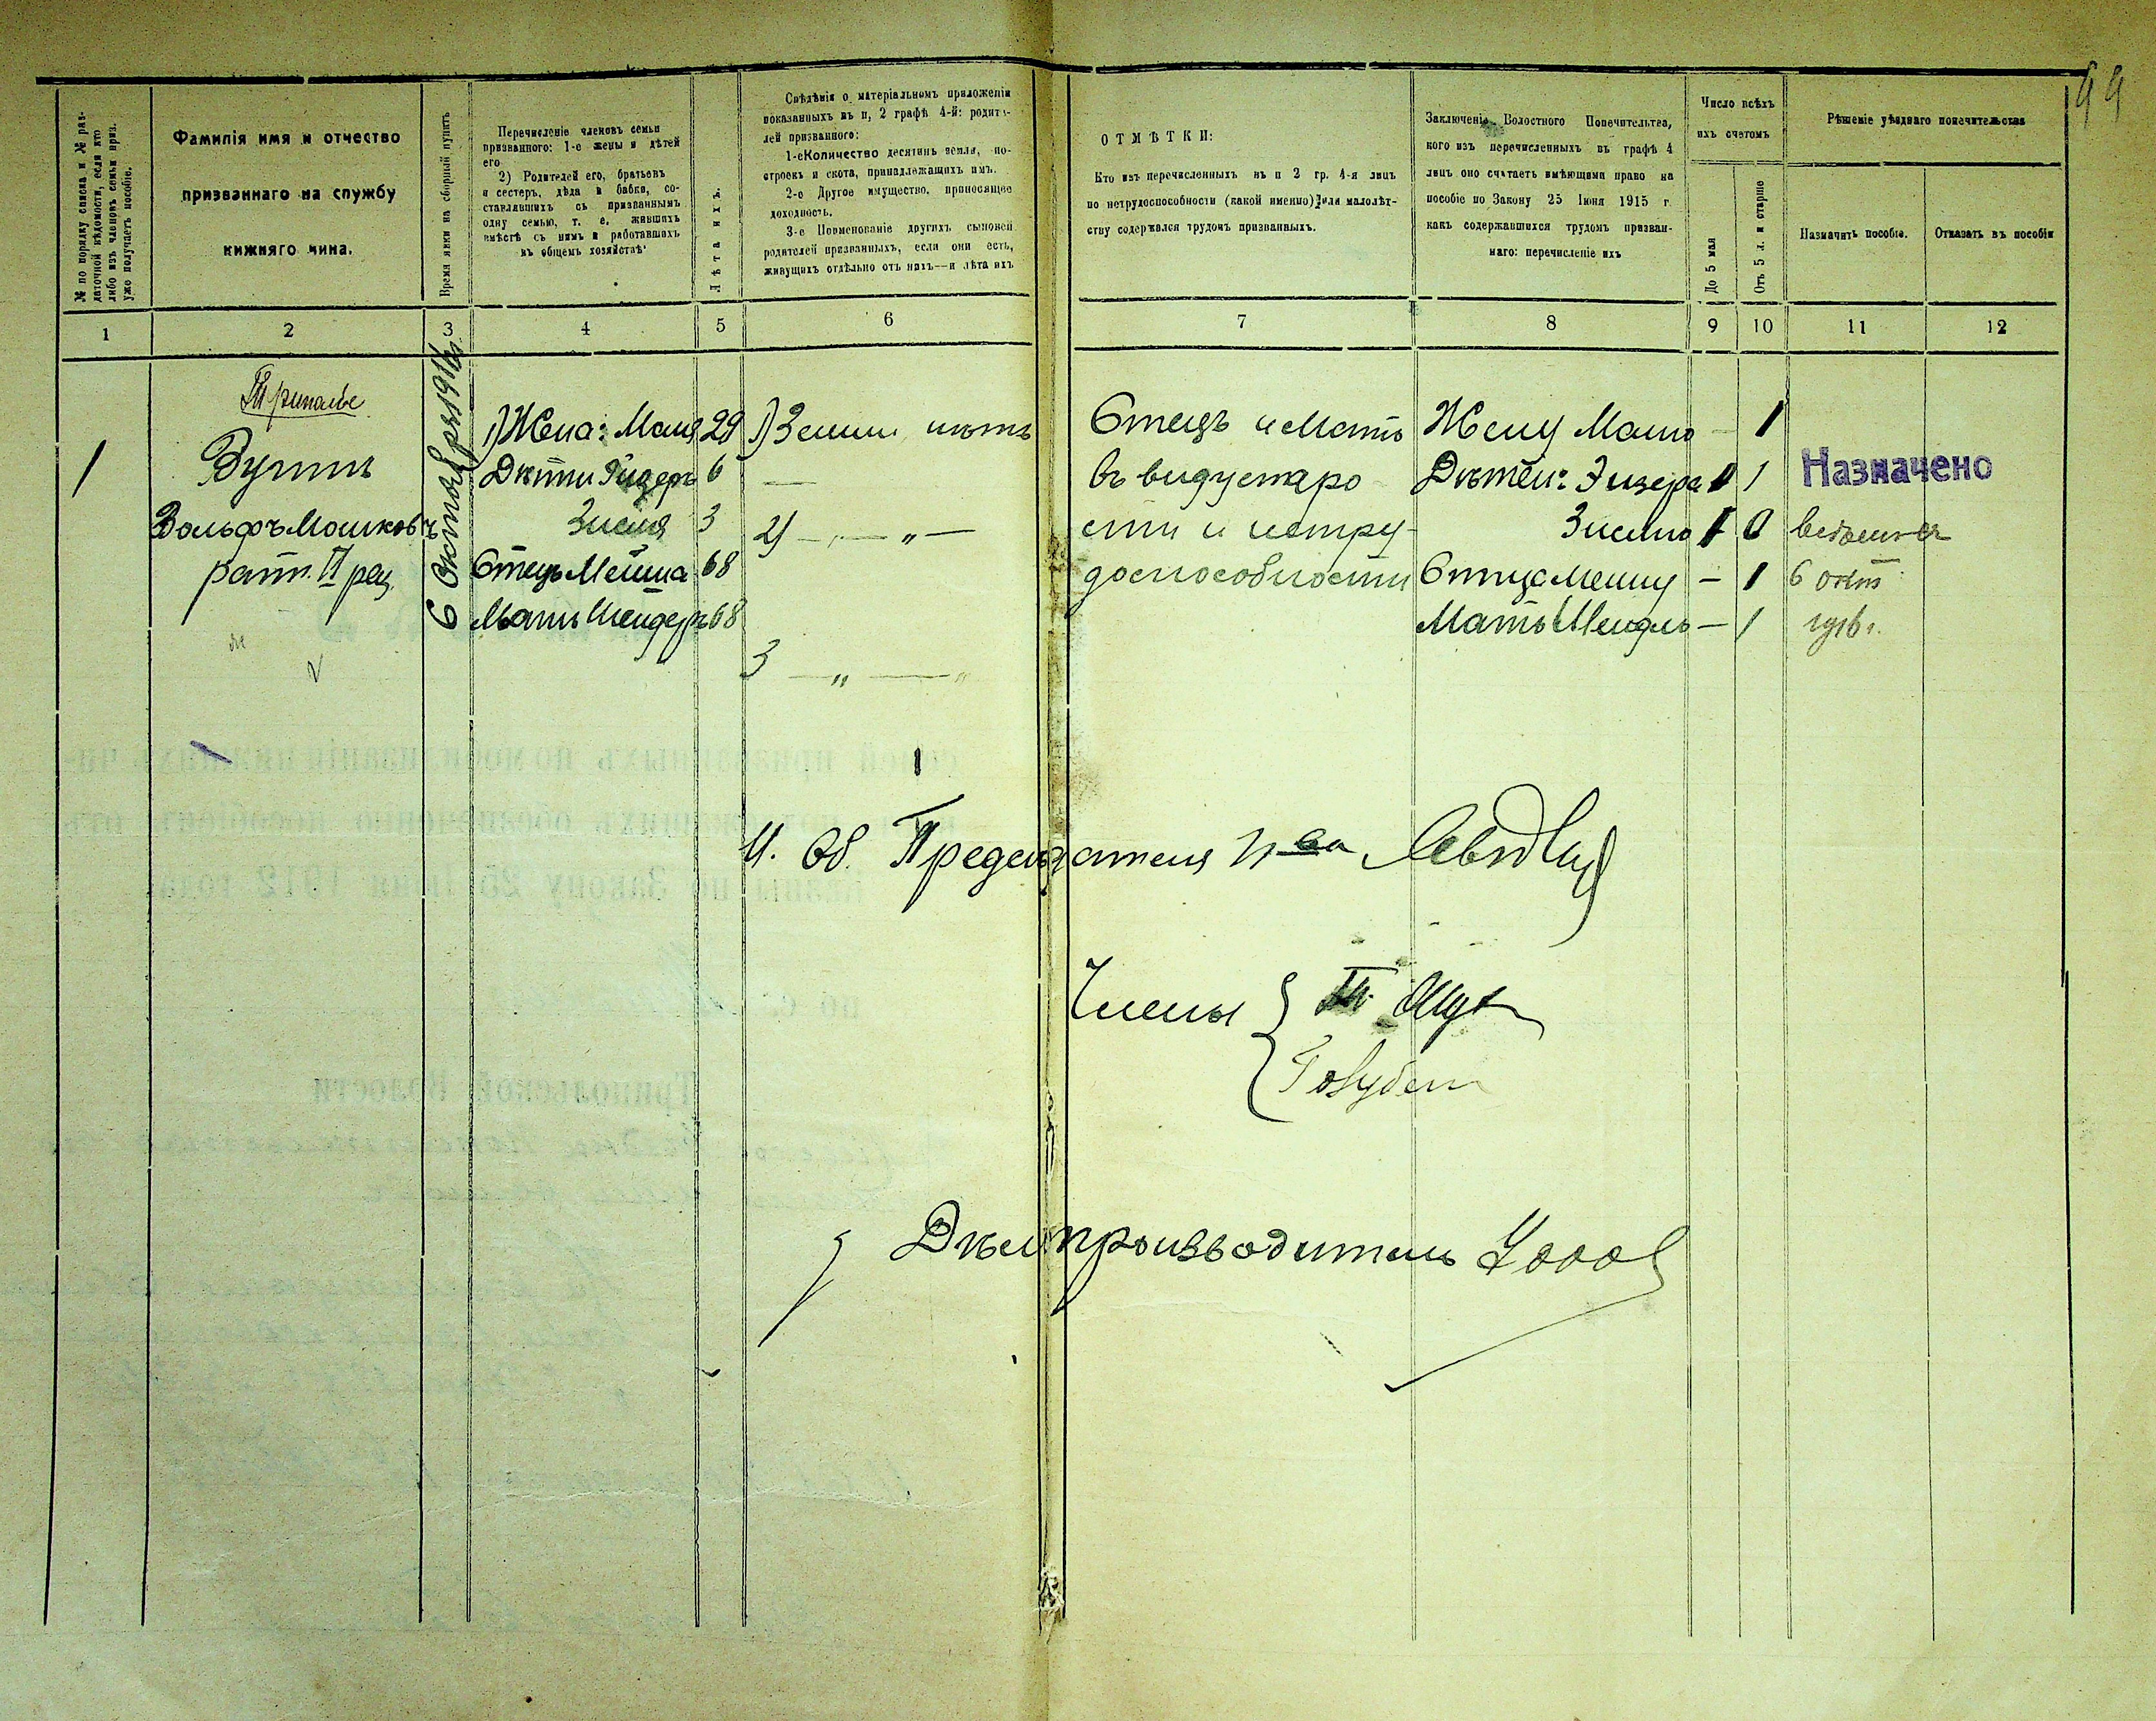 99
№ по порядку списка и № раз-
даточной вѣдомости, если кто
либо изъ членовъ семьи приз.
уже получаетъ пособіе.
Фамилія имя и отчество
призваннаго на службу
нижняго чина.
Время явки на сборный пунктъ
Перечисленіе членовъ семьи
призваннаго: 1-е жены и дѣтей
его
2) Родителей его, братьевъ
и сестеръ, дѣда и бабки, со-
ставлявшихъ съ призваннымъ
одну семью, т. е. жившихъ
вмѣстѣ съ нимъ и работавшихъ
въ общемъ хозяйствѣ.
Лѣта ихъ.
Свѣдѣнія о матеріальномъ положеніи
показанныхъ въ п. 2 графѣ 4-й: родите-
лей призваннаго:
1-е Количество десятинъ земли, по-
строекъ и скота, принадлежащихъ имъ.
2-е Другое имущество, приносящее
доходность.
3-е Поименованіе другихъ сыновей
родителей призванныхъ, если они есть,
живущихъ отдѣльно отъ нихъ—и лѣта ихъ
ОТМѢТКИ:
Кто изъ перечисленныхъ въ п 2 гр. 4-я лицъ
по нетрудоспособности (какой именно) или малолѣт-
ству содержался трудомъ призванныхъ.
Заключеніе Волостного Попечительтва,
кого изъ перечисленныхъ въ графѣ 4
лицъ оно считаетъ имѣющими право на
пособіе по Закону 25 Іюня 1915 г
какъ содержавшихся трудомъ призван-
наго: перечисленіе ихъ
Число всѣхъ
ихъ счетомъ
До 5 мая
Отъ 5 л. и старше
Рѣшеніе уѣзднаго попечительства
Назначить пособіе.
Отказать въ пособіи
1 2 3 4 5 6 7 8 9 10 11 12
Триполье
1
Вольфъ Мошковъ
рат. II раз.
6 Октября 1916 г.
1) Жена: Маня 29
Дѣти 6
Зисля 3
Отецъ 68
Мать 68
1) Земли нѣтъ
2) — „ —
3 — „ — „
Отецъ и Мать
въ виду старо
сти и нетру-
доспособности
Жену Маню — 1
Дѣтей: Эизера 1
Зислю 1 0
Отца — 1
Мать — 1
Назначено
6 окт
1916 г.
И. об. Предсѣдателя
Члены
Голубен
Дѣлопроизводитель